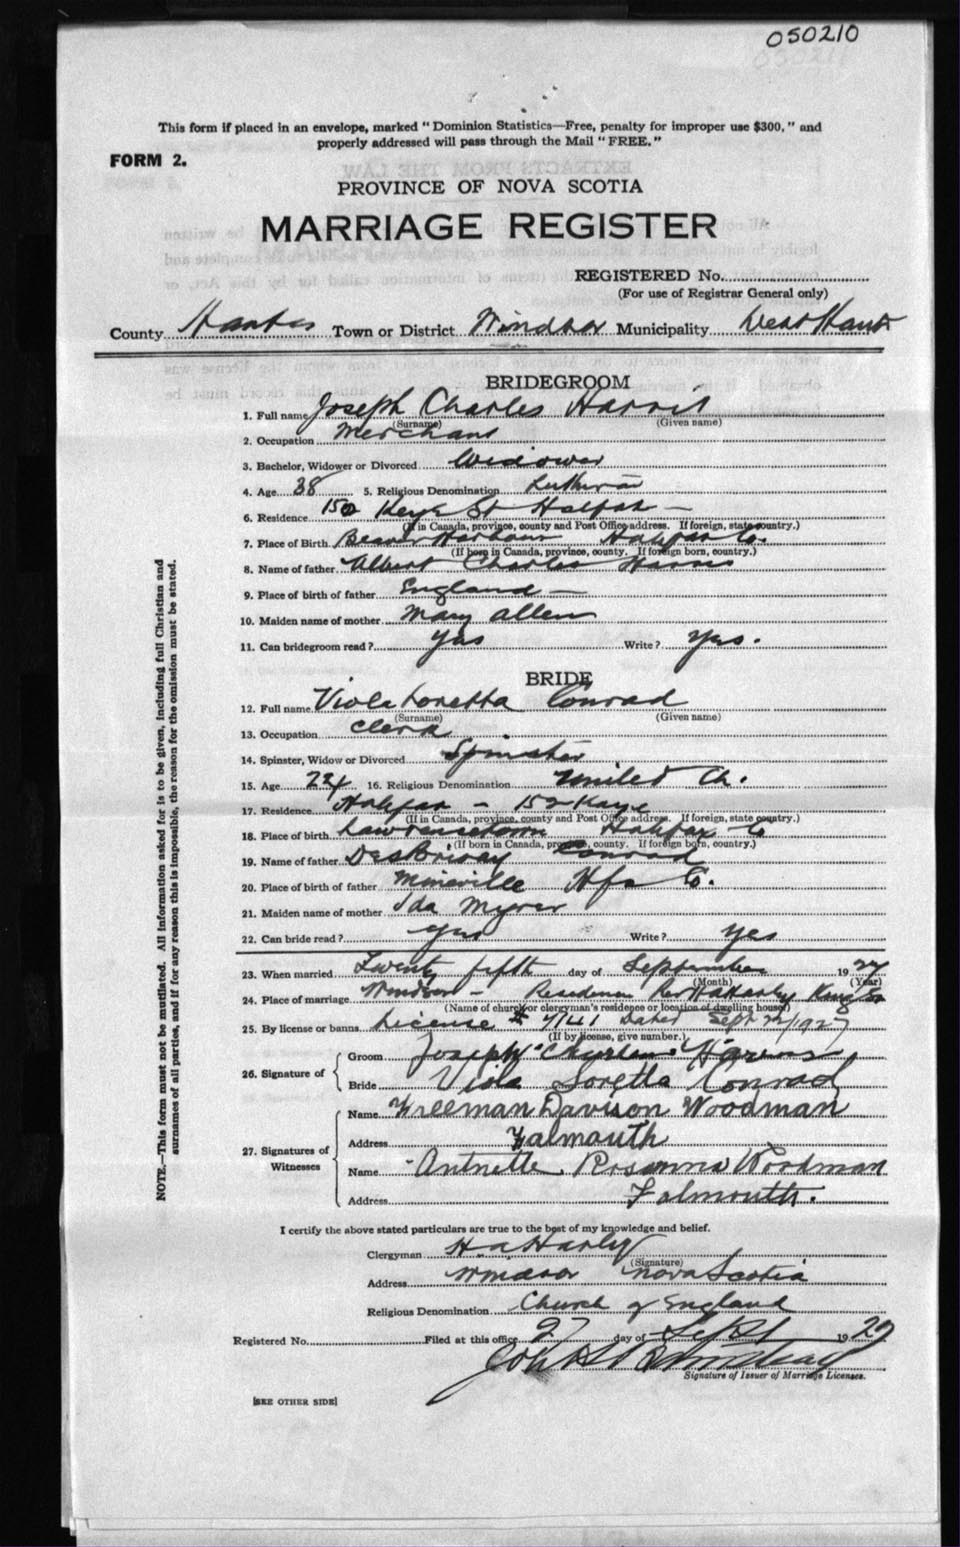 050210
This form if placed in an envelope, marked "Dominion Statistics—Free, penalty for improper use $300," and
properly addressed will pass through the Mail "FREE."
FORM 2.
PROVINCE OF NOVA SCOTIA
MARRIAGE REGISTER
REGISTERED No.
(For use of Registrar General only)
County Hants Town or District Windsor Municipality West Hants
BRIDEGROOM
1. Full name Joseph Charles Harris
(Surname) (Given name)
2. Occupation Merchant
3. Bachelor, Widower or Divorced Widower
4. Age 38 5. Religious Denomination Lutheran
6. Residence 152 Kaye St Halifax -
(If in Canada, province, county and Post Office address. If foreign, state country.)
7. Place of Birth Beaver Harbour Halifax Co.
(If born in Canada, province, county. If foreign born, country.)
8. Name of father Albert Charles Harris
9. Place of birth of father England —
10. Maiden name of mother Mary Allen
11. Can bridegroom read? yes Write? yes.
BRIDE
12. Full name Viola Loretta Conrad
(Surname) (Given name)
13. Occupation Clerk
14. Spinster, Widow or Divorced Spinster
15. Age 24 16. Religious Denomination United Ch.
17. Residence Halifax - 152 Kaye
(If in Canada, province, county and Post Office address. If foreign, state country.)
18. Place of birth Lawrencetown Halifax Co
(If born in Canada, province, county. If foreign born, country.)
19. Name of father DesBrisay Conrad
20. Place of birth of father Mineville Hfx Co.
21. Maiden name of mother Ida Myrer
22. Can bride read? yes Write? yes
23. When married Twenty fifth day of September 1927
(Month) (Year)
24. Place of marriage Windsor - Residence Rev
(Name of church or clergyman's residence or location of dwelling house)
25. By license or banns License # 7141 Dated Sept 22/1927
(If by license, give number.)
26. Signature of
Groom Joseph Charles Harris
Bride Viola Loretta Conrad
27. Signatures of Witnesses
Name Freeman Davison Woodman
Address Falmouth
Name Antnette Rosanna Woodman
Address Falmouth.
I certify the above stated particulars are true to the best of my knowledge and belief.
Clergyman H. A Harley
(Signature)
Address Windsor Nova Scotia
Religious Denomination Church of England
Registered No. Filed at this office 27 day of Sept 1927
Signature of Issuer of Marriage Licenses.
[SEE OTHER SIDE]
NOTE.—This form must not be mutilated. All information asked for is to be given, including full Christian and
surnames of all parties, and if for any reason this is impossible, the reason for the omission must be stated.